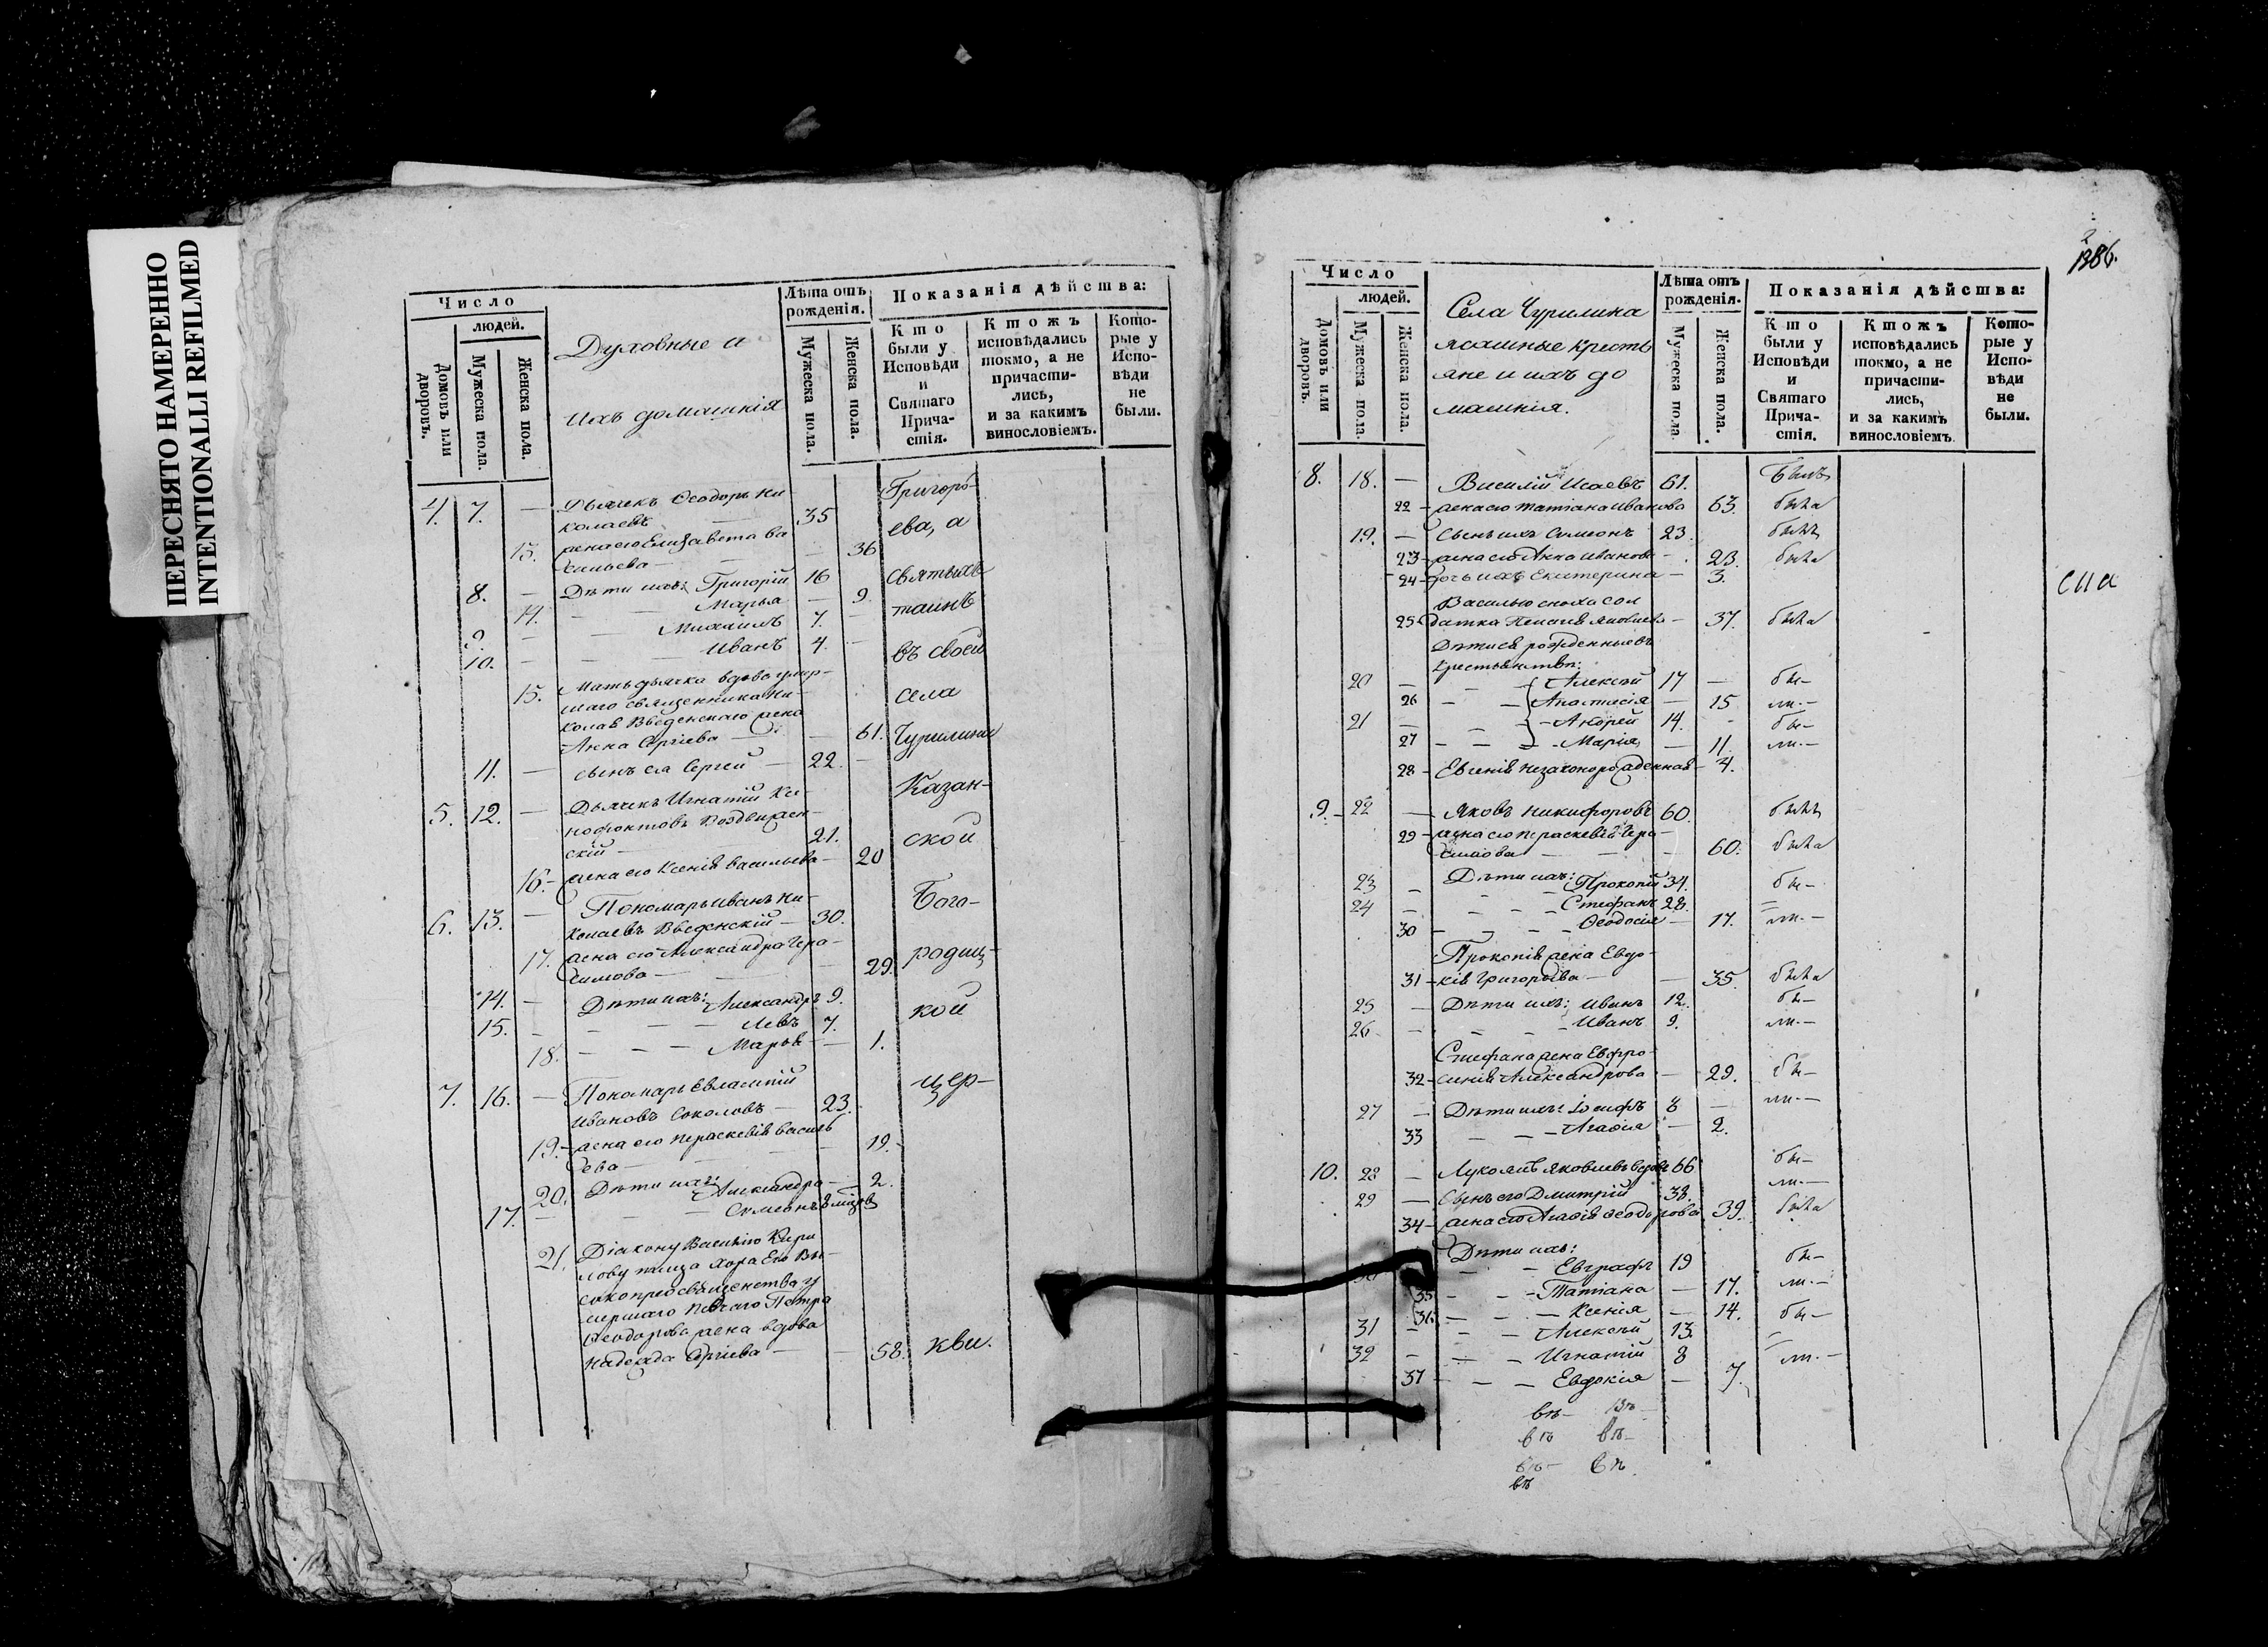 ПЕРЕСНЯТО НАМЕРЕННО
INTENTIONALLI REFILMED
Число
людей.
Домовъ или дворовъ.
Мужеска пола.
Женска пола.
Духовные и
ихъ домашнія
Лѣта отъ рожденія.
Мужеска пола.
Женска пола.
Показанія дѣйства:
Кто были у Исповѣди и Святаго Причастія.
Ктожъ исповѣдались токмо, а не причастились, и за какимъ винословіемъ.
Которые у Исповѣди не были.
4. 7. — Дьячекъ Ѳеодоръ Ни Григорь-
колаевъ — 35 ева, а
13. жена его Елизавета Ва
сильева — — 36
8. — Дѣти ихъ: Григорій 16 святыхъ
14. — — Марья — 9. таинъ
9. — — Михаилъ 7. —
10. — — Иванъ 4. — въ своей
15. Мать дьячка вдова умер-
шаго священника Ни- села
колая Введенскаго жена
Анна Сергіева — — 61. Чурилина
11. — сынъ ея Сергей — 22. —
5. 12. — Дьячекъ Игнатій Ксе- Казан-
нофонтовъ Воздвижен-
скій — 21. ской
16. — жена его Ксенія Васильева — 20
6. 13. — Пономарь Иванъ Ни- Бого-
колаевъ Введенскій — 30.
17. жена его Александра Гера- родиц-
симова — — 29.
14. — Дѣти ихъ: Александръ 9. кой
15. — — — Левъ 7.
18. — — — Марья — 1.
7. 16. — Пономарь Евлампій цер-
Ивановъ Соколовъ — 23.
19. — жена его Параскевія Василь
ева — — 19. —
20. Дѣти ихъ: Александра — 2.
17. — — — Симеонъ
21. Діакону Василію Кири
лову хора Его Вы-
сокопреосвященства у
мершаго Пѣвчаго Петра
Ѳеодорова жена вдова
Надежда Сергіева — — 58. кви.
2
1386.
Число
людей.
Домовъ или дворовъ.
Мужеска пола.
Женска пола.
Села Чурилина
ясашные кресть
яне и ихъ до
машнія.
Лѣта отъ рожденія.
Мужеска пола.
Женска пола.
Показанія дѣйства:
Кто были у Исповѣди и Святаго Причастія.
Ктожъ исповѣдались токмо, а не причастились, и за какимъ винословіемъ.
Которые у Исповѣди не были.
8. 18. — Василій Исаевъ 61. былъ
22 — жена его Татіана Иванова 63. была
19. — Сынъ ихъ Симеонъ 23. былъ
23 — жена его Анна Иванова — 23. была
24 — дочь ихъ Екатерина — 3.
сна
Василью сноха сол
25 — датка Яковлева — 37. была
Дѣти ея рожденные въ
крестьянствѣ:
20 — — Алексѣй 17 — бы—
26 — — Анастасія — 15 ли.—
21 — — Андрей 14. — бы—
27 — — — Марія — 11. ли.—
28 — Евгенія незаконорожденная — 4.
9. — 22 — Яковъ Никифоровъ 60. былъ
29 — жена его Параскевія Гера —
симова — — 60. была
23 — Дѣти ихъ: Прокопій 34. бы—
24 — — — Стефанъ 28. =
30 — — — — Ѳеодосія — 17. ли.—
Прокопія жена Евдо-
31 — кія Григорьева — — 35. была
25 — Дѣти ихъ: Иванъ 12. бы—
26 — — — — Иванъ 9. ли.—
Стефана жена Евфро-
32 — синія Александрова — 29. бы—
27 — Дѣти ихъ: Іосифъ 8 — ли.—
33 — — — Агафія — 2.
10. 28 — Лукоянъ Яковлевъ вдовъ 66 бы—
29 — Сынъ его Дмитрій 38. ли.—
34 — жена его Агафія Ѳеодорова 39. была
Дѣти ихъ:
30 — — Евграфъ 19 бы—
35 — — — Татіана — 17. ли.—
36 — — — Ксенія — 14. бы—
31 — — — Алексѣй 13. =
32 — — — Игнатій 8 ли.—
37 — — — Евдокія — 7.